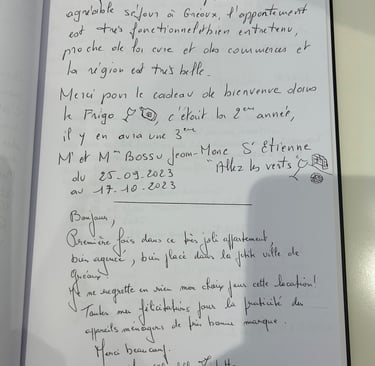 agréable séjour à Gréoux, l'appartement
est très fonctionnel et bien entretenu,
proche de la cure et des commerces et
la région est très belle.
Merci pour le cadeau de bienvenue dans
le Frigo, c'était la 2ème année,
il y en aura une 3ème
Mr et Mme Bossu Jean-Marc St Etienne
"Allez les verts"
du 25-09-2023
au 17-10-2023
Bonjour,
Première fois dans ce très joli appartement,
bien agencé, bien placé dans la petite ville de
Gréoux
Je ne regrette en rien mon choix pour cette location!
Toutes mes félicitations pour la praticité des
appareils ménagers de très bonne marque.
Merci beaucoup.